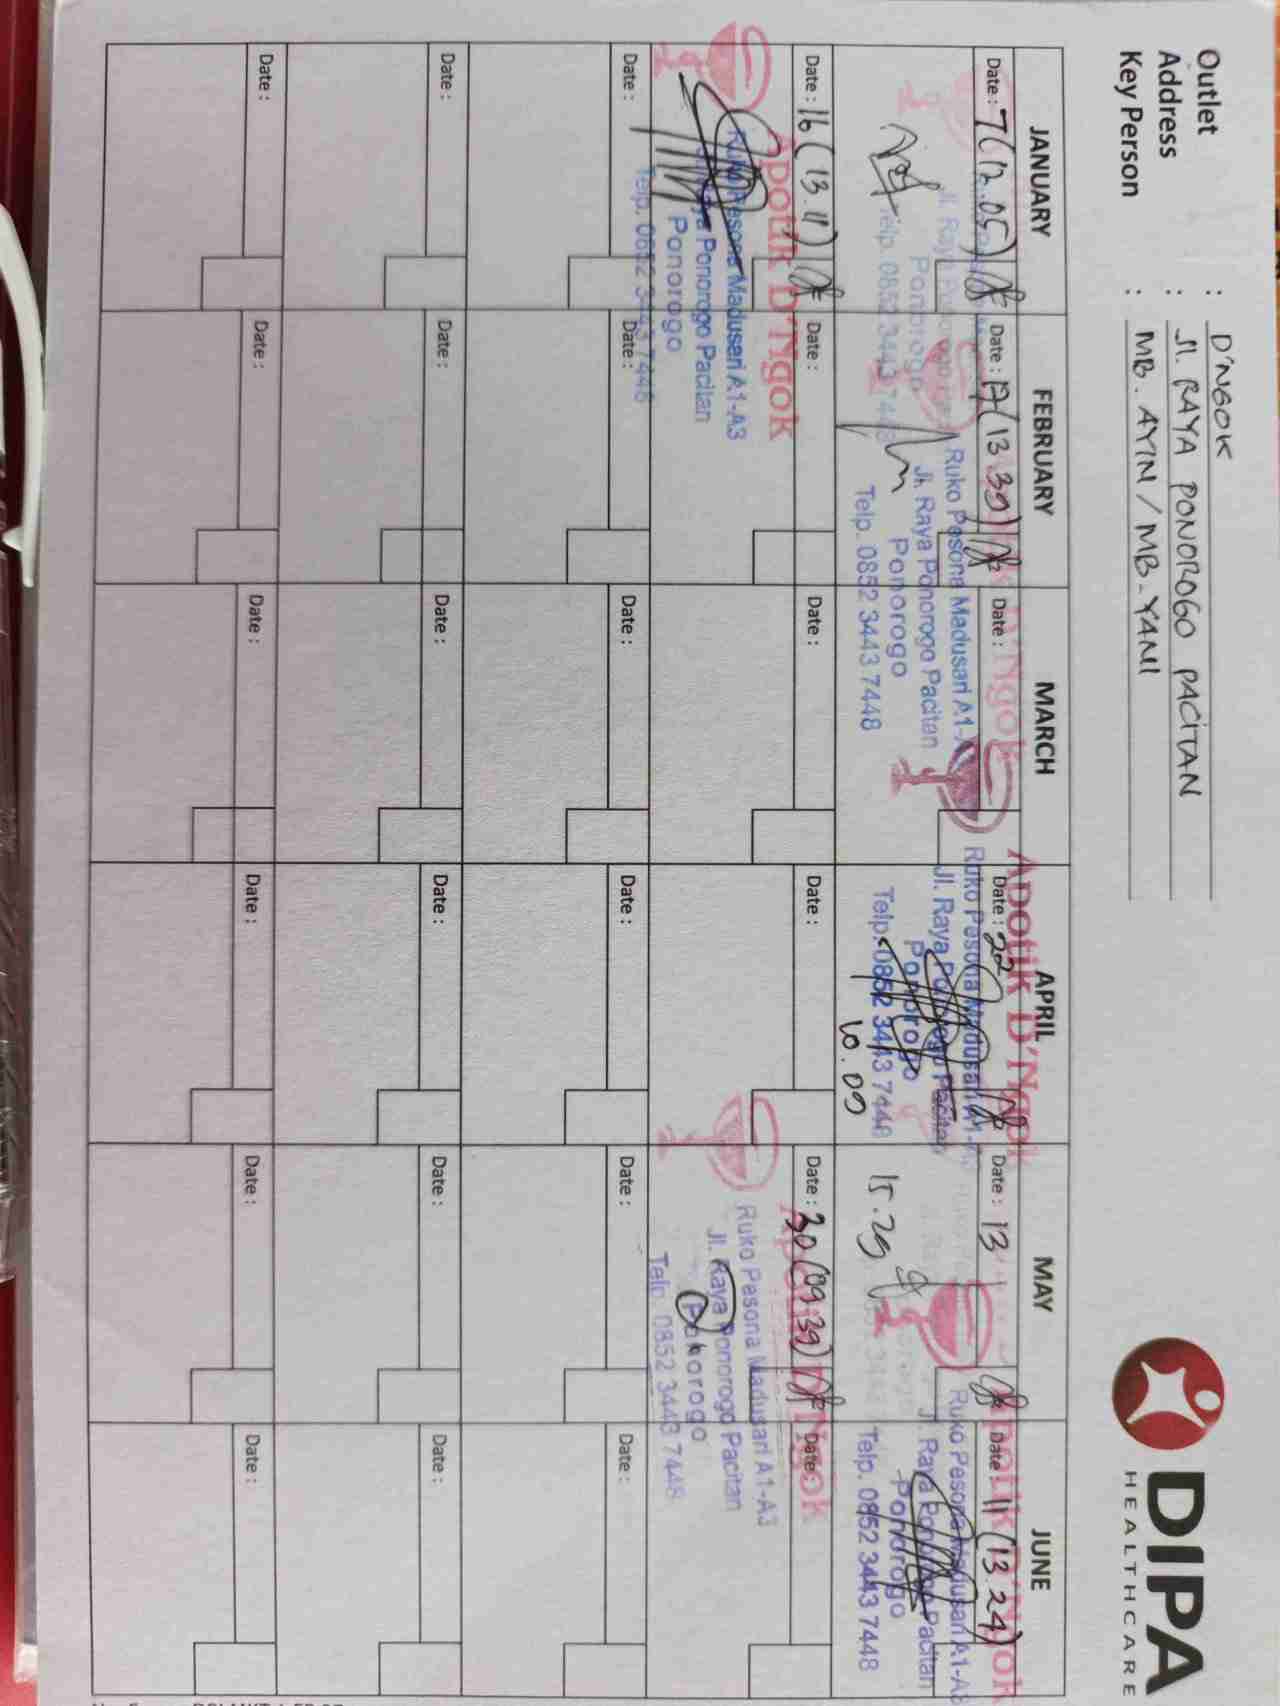 Outlet : D'NGOK
Address : Jl. RAYA PONOROGO PACITAN
Key Person : MB. AYIN / MB. YANI
DIPA
HEALTHCARE
JANUARY FEBRUARY MARCH APRIL MAY JUNE
Date : 7 (12.05) Date : 17 (13 39) Date : Date : 22 Date : 13 Date : 11 (13.24)
D'Ngok
Apotik D'Ngok
Apotik D'Ngok
Ruko Pesona Madusari A1-A3
Jl. Raya Ponorogo Pacitan
Ponorogo
Telp. 0852 3443 7448
Ruko Pesona Madusari A1-A3
Jl. Raya Ponorogo Pacitan
Ponorogo
Telp. 0852 3443 7448
10.09
15.29
Ruko Pesona Madusari A1-A3
Jl. Raya Ponorogo Pacitan
Ponorogo
Telp. 0852 3443 7448
Jl. Raya
Ponorogo
Telp. 0852 3443 7448
Date : 16 (13.11) Date : Date : Date : Date : 30 (09.39) Date :
Apotik D'Ngok
Ruko Pesona Madusari A1-A3
Jl. Raya Ponorogo Pacitan
Ponorogo
Telp. 0852 3443 7448
Apotik D'Ngok
Ruko Pesona Madusari A1-A3
Jl. Raya Ponorogo Pacitan
Ponorogo
Telp. 0852 3443 7448
Date : Date : Date : Date : Date : Date :
Date : Date : Date : Date : Date : Date :
Date : Date : Date : Date : Date : Date :